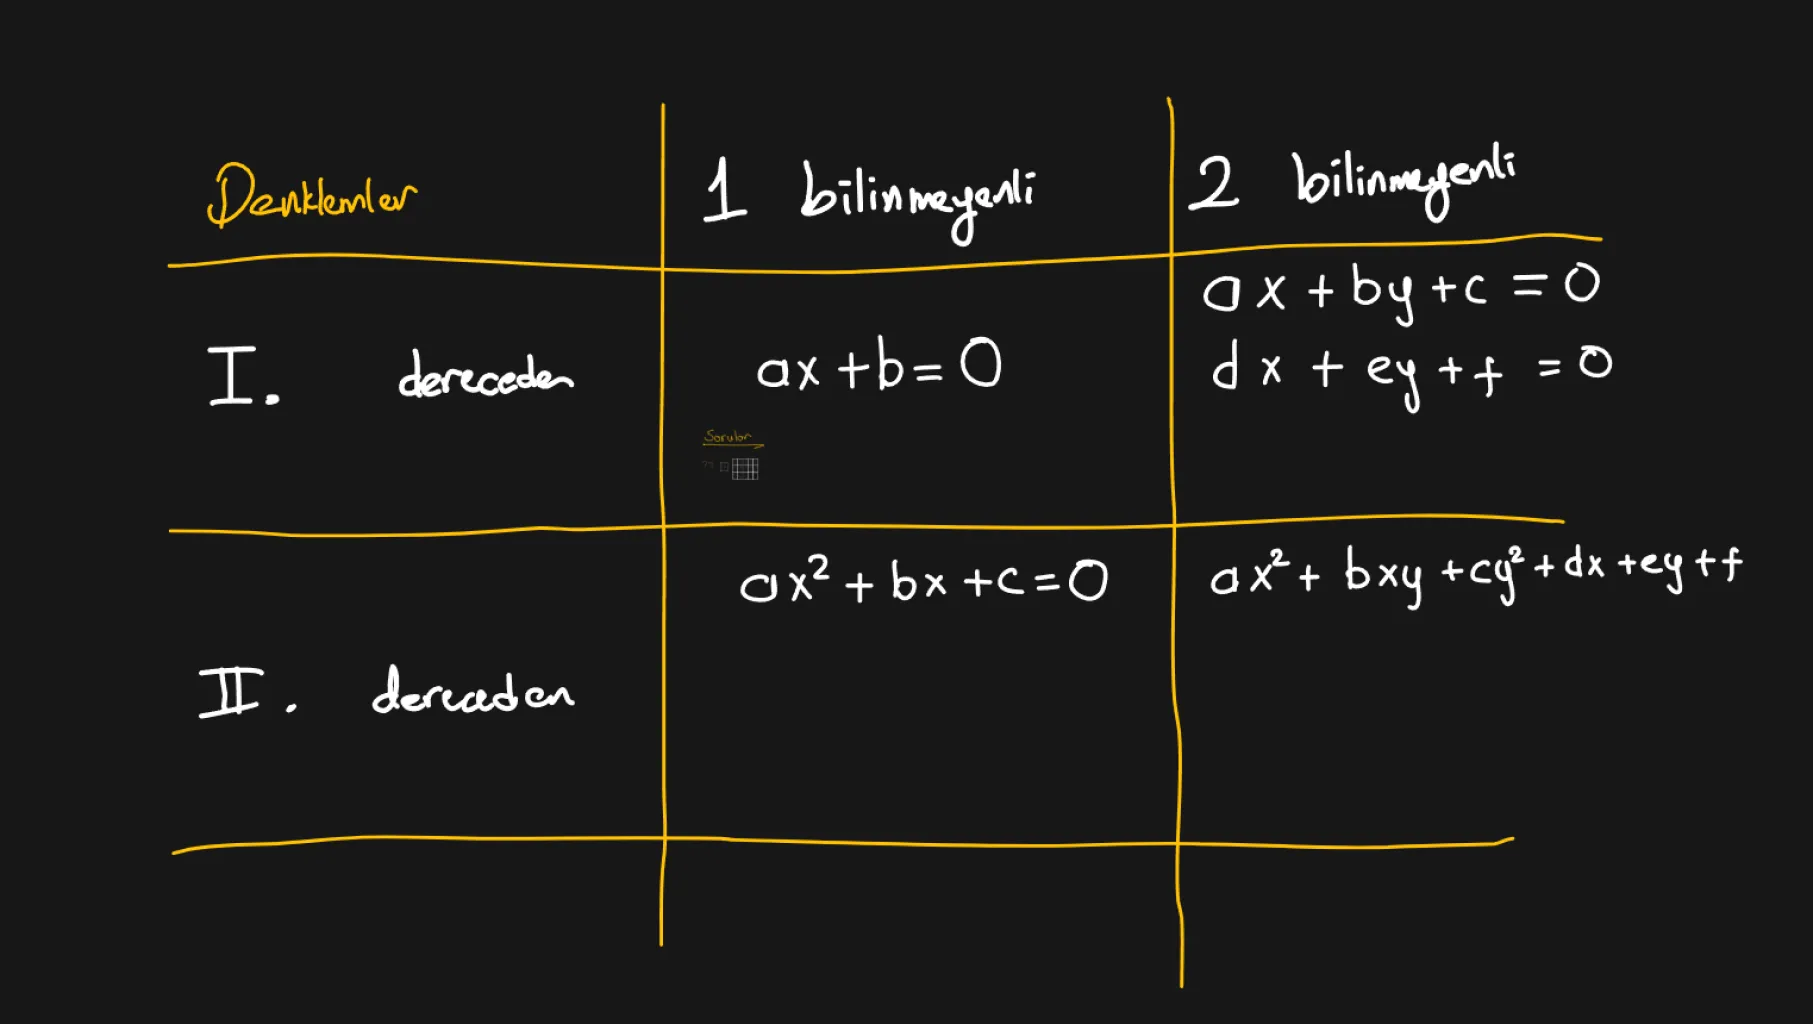 Denklemler
1 bilinmeyenli
2 bilinmeyenli
I. dereceden
ax + b = 0
Sorular
ax + by + c = 0
dx + ey + f = 0
II. dereceden
ax² + bx + c = 0
ax² + bxy + cy² + dx + ey + f